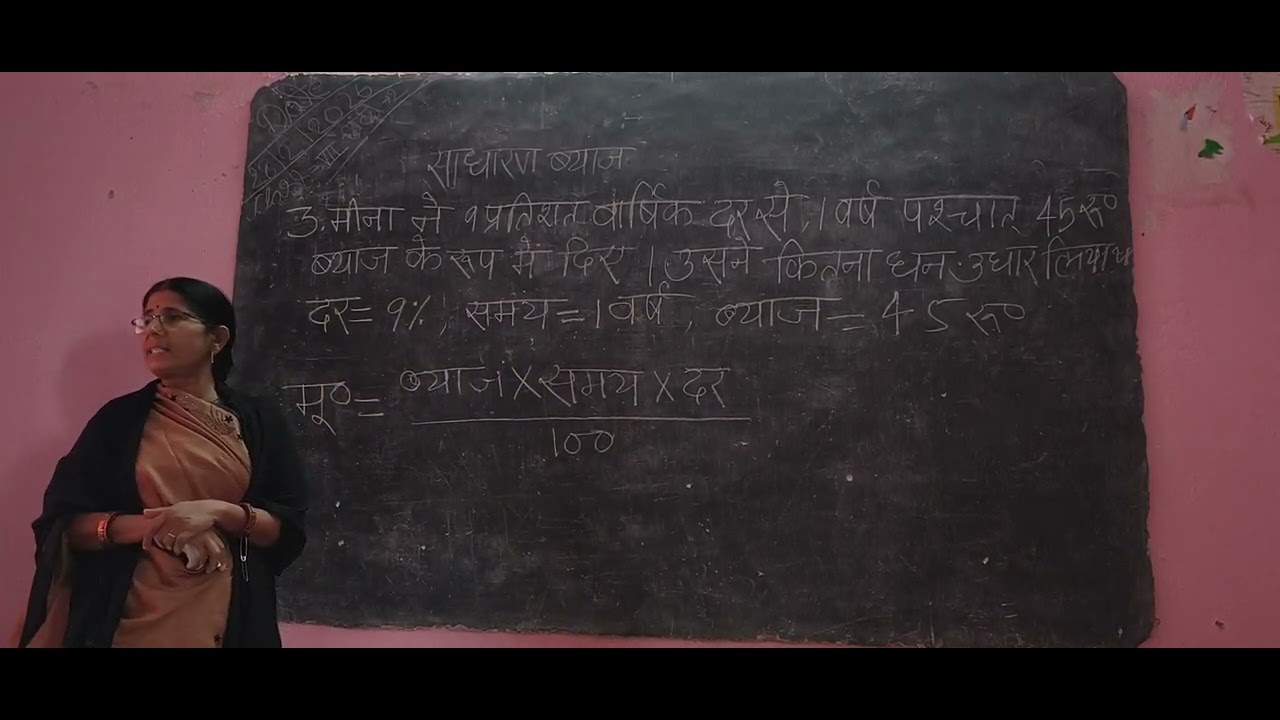 साधारण ब्याज
3. मीना ने 9 प्रतिशत वार्षिक दर से, 1 वर्ष पश्चात् 45 रू०
ब्याज के रूप में दिए । उसने कितना धन उधार लिया था
दर = 9%, समय = 1 वर्ष, ब्याज = 45 रू०
मू० = ब्याज X समय X दर
100